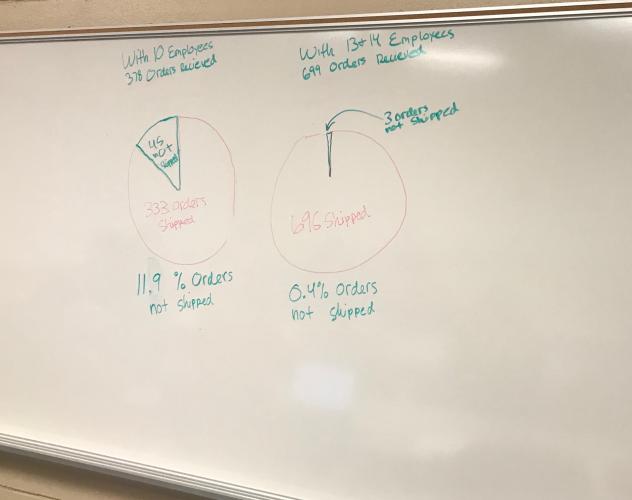 With 10 Employees
378 Orders Recieved
45
not
shipped
333 orders
shipped
11.9 % Orders
not shipped
With 13+14 Employees
699 Orders Recieved
3 orders
not shipped
696 Shipped
0.4% orders
not shipped